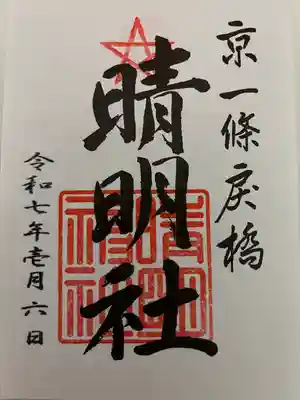 京一條戻橋
晴明社
令和七年壱月六日
晴明神社